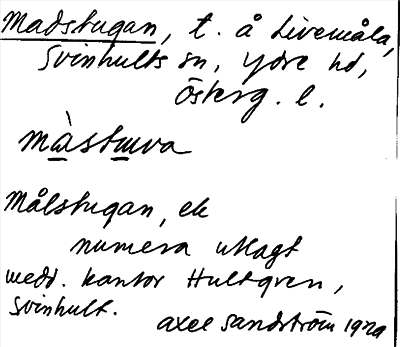 Madstugan, t. å Livemåla,
Svinhults sn, Ydre hd,
Österg. l.
Målstugan, ek
numera utlagt
medd. kantor Hultgren,
Svinhult.
Axel Sandström